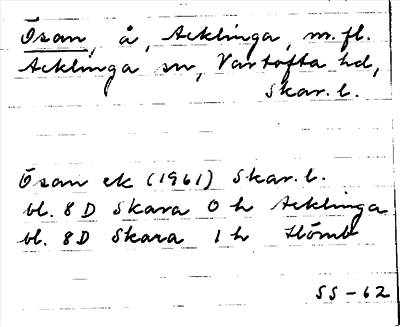 Ösan, å, Acklinga, m.fl.
Acklinga sn, Vartofta hd,
Skar. l.
Ösan ek (1961) Skar. l.
bl. 8 D Skara 0 h Acklinga
bl. 8 D Skara 1 h Hömb
SS-62